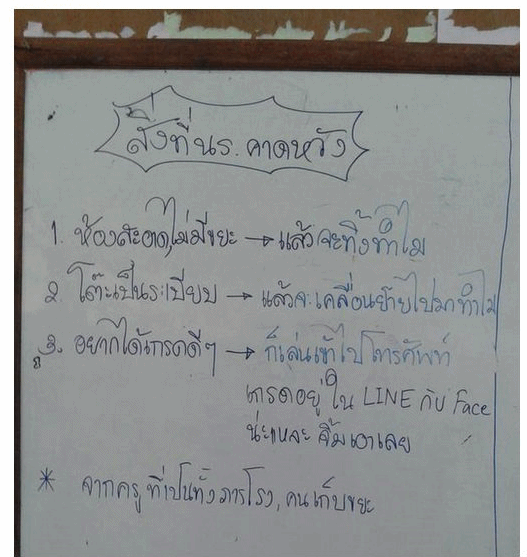 สิ่งที่นร. คาดหวัง
1. ห้องสะอาด,ไม่มีขยะ → แล้วจะทิ้งทำไม
2. โต๊ะเป็นระเบียบ → แล้วจะเคลื่อนย้ายไปมาทำไม
3. อยากได้เกรดดีๆ → ก็เล่นเข้าไปโทรศัพท์
เกรดอยู่ใน LINE กับ Face
น่ะแหละ จิ้มเอาเลย
* จากครูที่เป็นทั้งภารโรง, คนเก็บขยะ